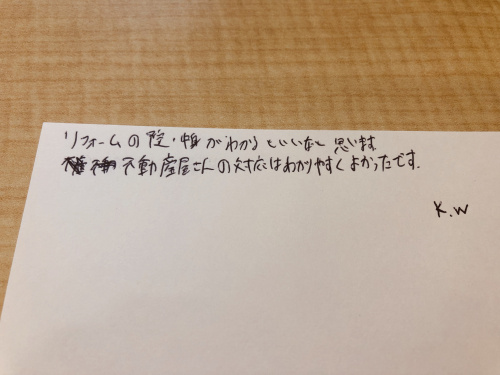 リフォームの がわかるといいなと思います。
不動産屋さんの対応はわかりやすくよかったです。
K.W